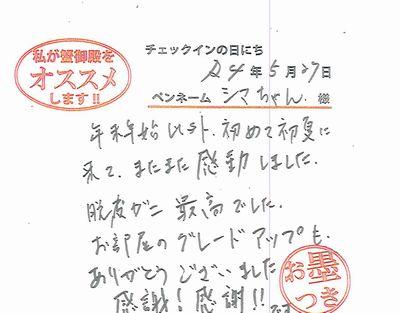 私が蟹御殿を
オススメ
します!!
チェックインの日にち
24年5月27日
ペンネーム シマちゃん 様
年末年始以外、初めて初夏に
来て、またまた感動しました。
脱皮ガニ最高でした。
お部屋のグレードアップも、
ありがとうございました
感謝!感謝!!です
お墨
つき